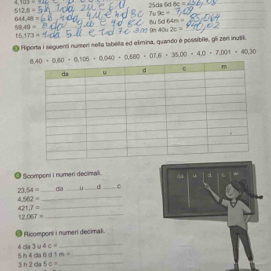 4,103 =
512,8 = 5h 1da 2u e 8d
644,48 = 6h 4da 4u 4d 8c
59,48 = 5da 9u 4d 8c
15,173 = 1da 5u 1d 7c 3m
25da 6d 8c =
7u 9c = 7,09
8u 5d 64m =
9m 40u 2c =
Riporta i seguenti numeri nella tabella ed elimina, quando è possibile, gli zeri inutili.
8,40 • 0,60 • 0,105 • 0,040 • 0,680 • 07,6 • 35,00 • 4,0 • 7,001 • 40,30
da u d c m
Scomponi i numeri decimali.
23,54 = ___ da ___ u ___ d ___ c
4,562 =
421,7 =
12,067 =
da u d c m
Ricomponi i numeri decimali.
4 da 3 u 4 c =
5 h 4 da 6 d 1 m =
3 h 2 da 5 c =